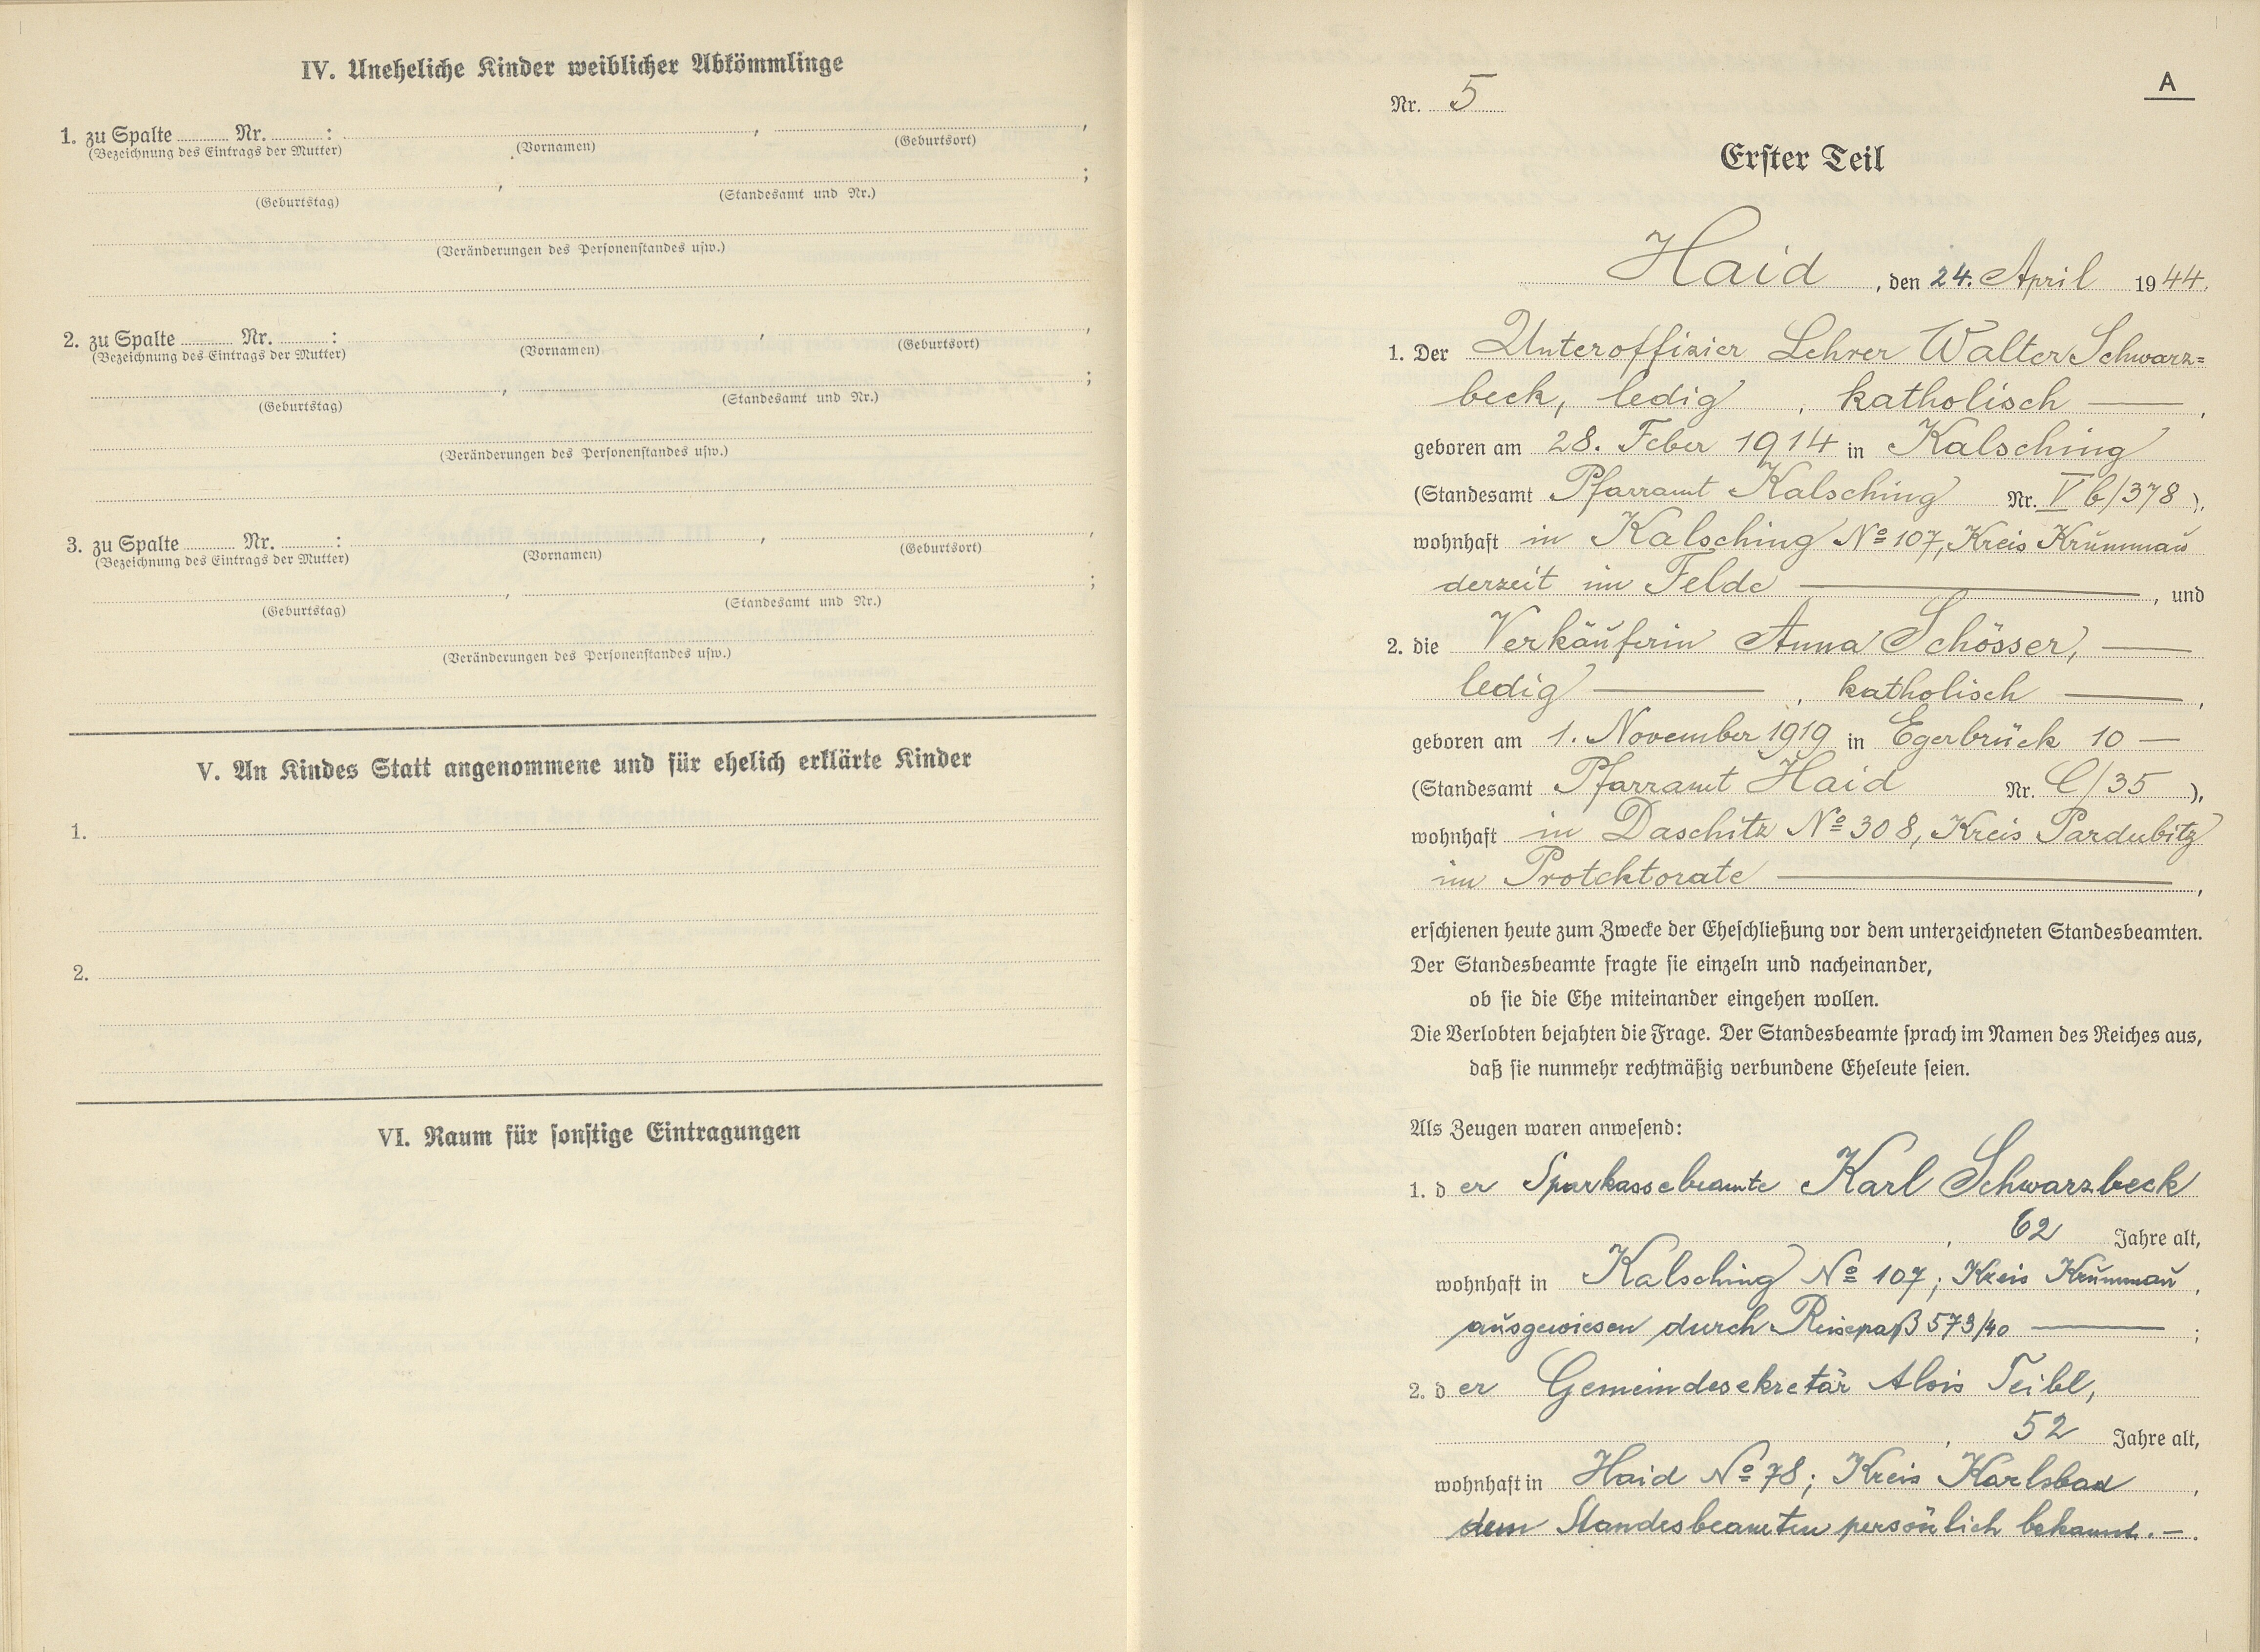 IV. Uneheliche Kinder weiblicher Abkömmlinge
1. zu Spalte ........ Nr. ........ :
(Bezeichnung des Eintrags der Mutter) (Vornamen) (Geburtsort)
(Geburtstag) (Standesamt und Nr.)
(Veränderungen des Personenstandes usw.)
2. zu Spalte ........ Nr. ........ :
(Bezeichnung des Eintrags der Mutter) (Vornamen) (Geburtsort)
(Geburtstag) (Standesamt und Nr.)
(Veränderungen des Personenstandes usw.)
3. zu Spalte ........ Nr. ........ :
(Bezeichnung des Eintrags der Mutter) (Vornamen) (Geburtsort)
(Geburtstag) (Standesamt und Nr.)
(Veränderungen des Personenstandes usw.)
V. An Kindes Statt angenommene und für ehelich erklärte Kinder
1.
2.
VI. Raum für sonstige Eintragungen
A
Nr. 5
Erster Teil
Haid, den 24. April 1944.
1. Der Unteroffizier Lehrer Walter Schwarz=
beck, ledig, katholisch —,
geboren am 28. Feber 1914 in Kalsching
(Standesamt Pfarramt Kalsching Nr. V b/378),
wohnhaft in Kalsching No 107, Kreis Krummau
derzeit im Felde —, und
2. die Verkäuferin Anna Schösser, —
ledig —, katholisch —,
geboren am 1. November 1919 in Egerbrück 10 —
(Standesamt Pfarramt Haid Nr. C/35),
wohnhaft in Daschitz No 308, Kreis Pardubitz
im Protektorate —,
erschienen heute zum Zwecke der Eheschließung vor dem unterzeichneten Standesbeamten.
Der Standesbeamte fragte sie einzeln und nacheinander,
ob sie die Ehe miteinander eingehen wollen.
Die Verlobten bejahten die Frage. Der Standesbeamte sprach im Namen des Reiches aus,
daß sie nunmehr rechtmäßig verbundene Eheleute seien.
Als Zeugen waren anwesend:
1. der Sparkassebeamte Karl Schwarzbeck
, 62 Jahre alt,
wohnhaft in Kalsching No 107; Kreis Krummau,
ausgewiesen durch Reisepaß 573/40 — ;
2. der Gemeindesekretär Alois Teibl,
, 52 Jahre alt,
wohnhaft in Haid No 78; Kreis Karlsbad,
dem Standesbeamten persönlich bekannt. —.